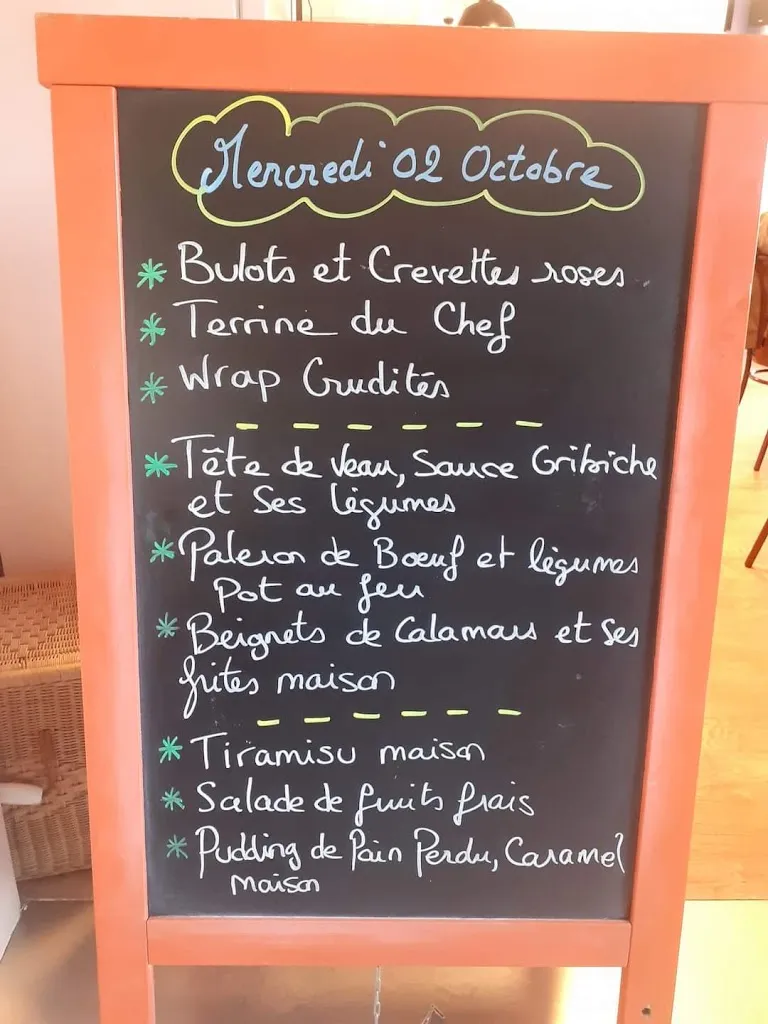 Mercredi 02 Octobre
* Bulots et Crevettes roses
* Terrine du Chef
* Wrap Crudités
* Tête de Veau, Sauce Gribiche
et Ses légumes
* Paleron de Boeuf et légumes
Pot au feu
* Beignets de Calamars et Ses
frites maison
* Tiramisu maison
* Salade de fruits frais
* Pudding de Pain Perdu, Caramel
maison